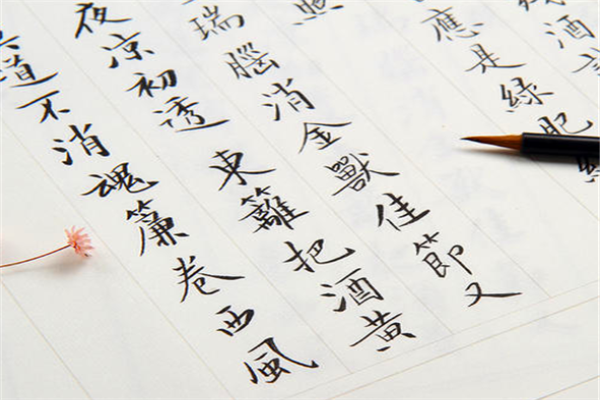 酒
應是綠肥
照
瑞腦消金獸佳節又
夜凉初透東籬把酒黃
道不消魂簾卷西風